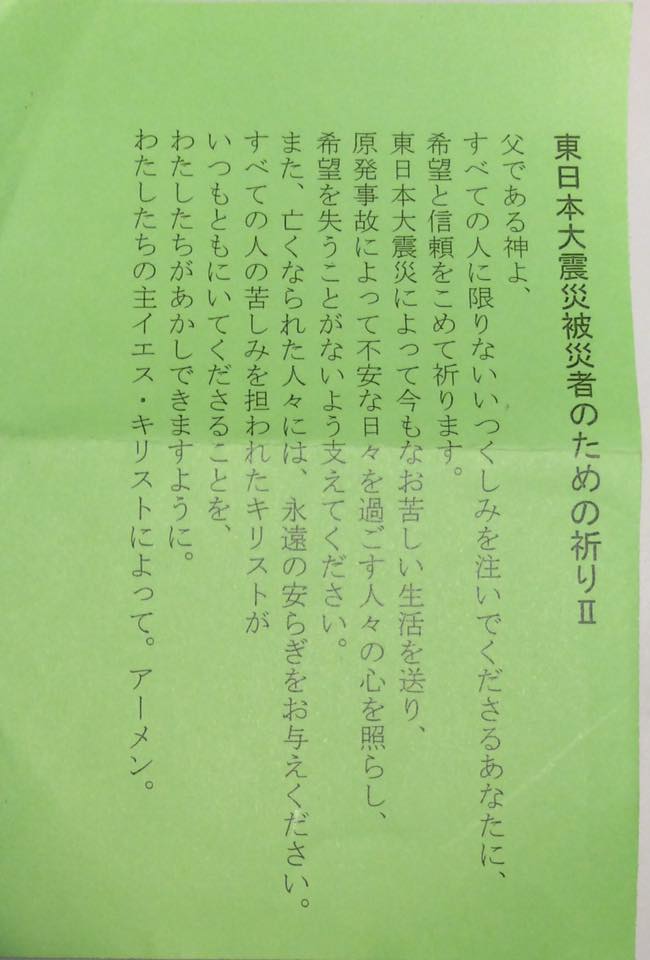 東日本大震災被災者のための祈りⅡ
父である神よ、
すべての人に限りないいつくしみを注いでくださるあなたに、
希望と信頼をこめて祈ります。
東日本大震災によって今もなお苦しい生活を送り、
原発事故によって不安な日々を過ごす人々の心を照らし、
希望を失うことがないよう支えてください。
また、亡くなられた人々には、永遠の安らぎをお与えください。
すべての人の苦しみを担われたキリストが
いつもともにいてくださることを、
わたしたちがあかしできますように。
わたしたちの主イエス・キリストによって。アーメン。